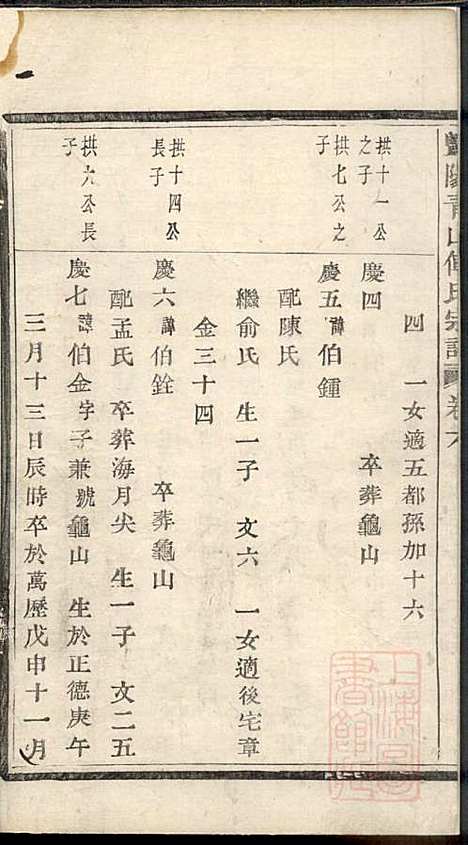 青山傅氏宗譜 卷六
四 一女適五都孫加十六
拱十一公
之子
慶四 卒葬龜山
拱七公之
子
慶五諱伯鍾
配陳氏
繼俞氏 生一子 文六 一女適後宅章
金三十四
拱十四公
長子
慶六諱伯銓 卒葬龜山
配孟氏 卒葬海月尖 生一子 文二五
拱六公長
子
慶七諱伯金字子兼號龜山 生於正德庚午
三月十三日辰時卒於萬歷戊申十一月